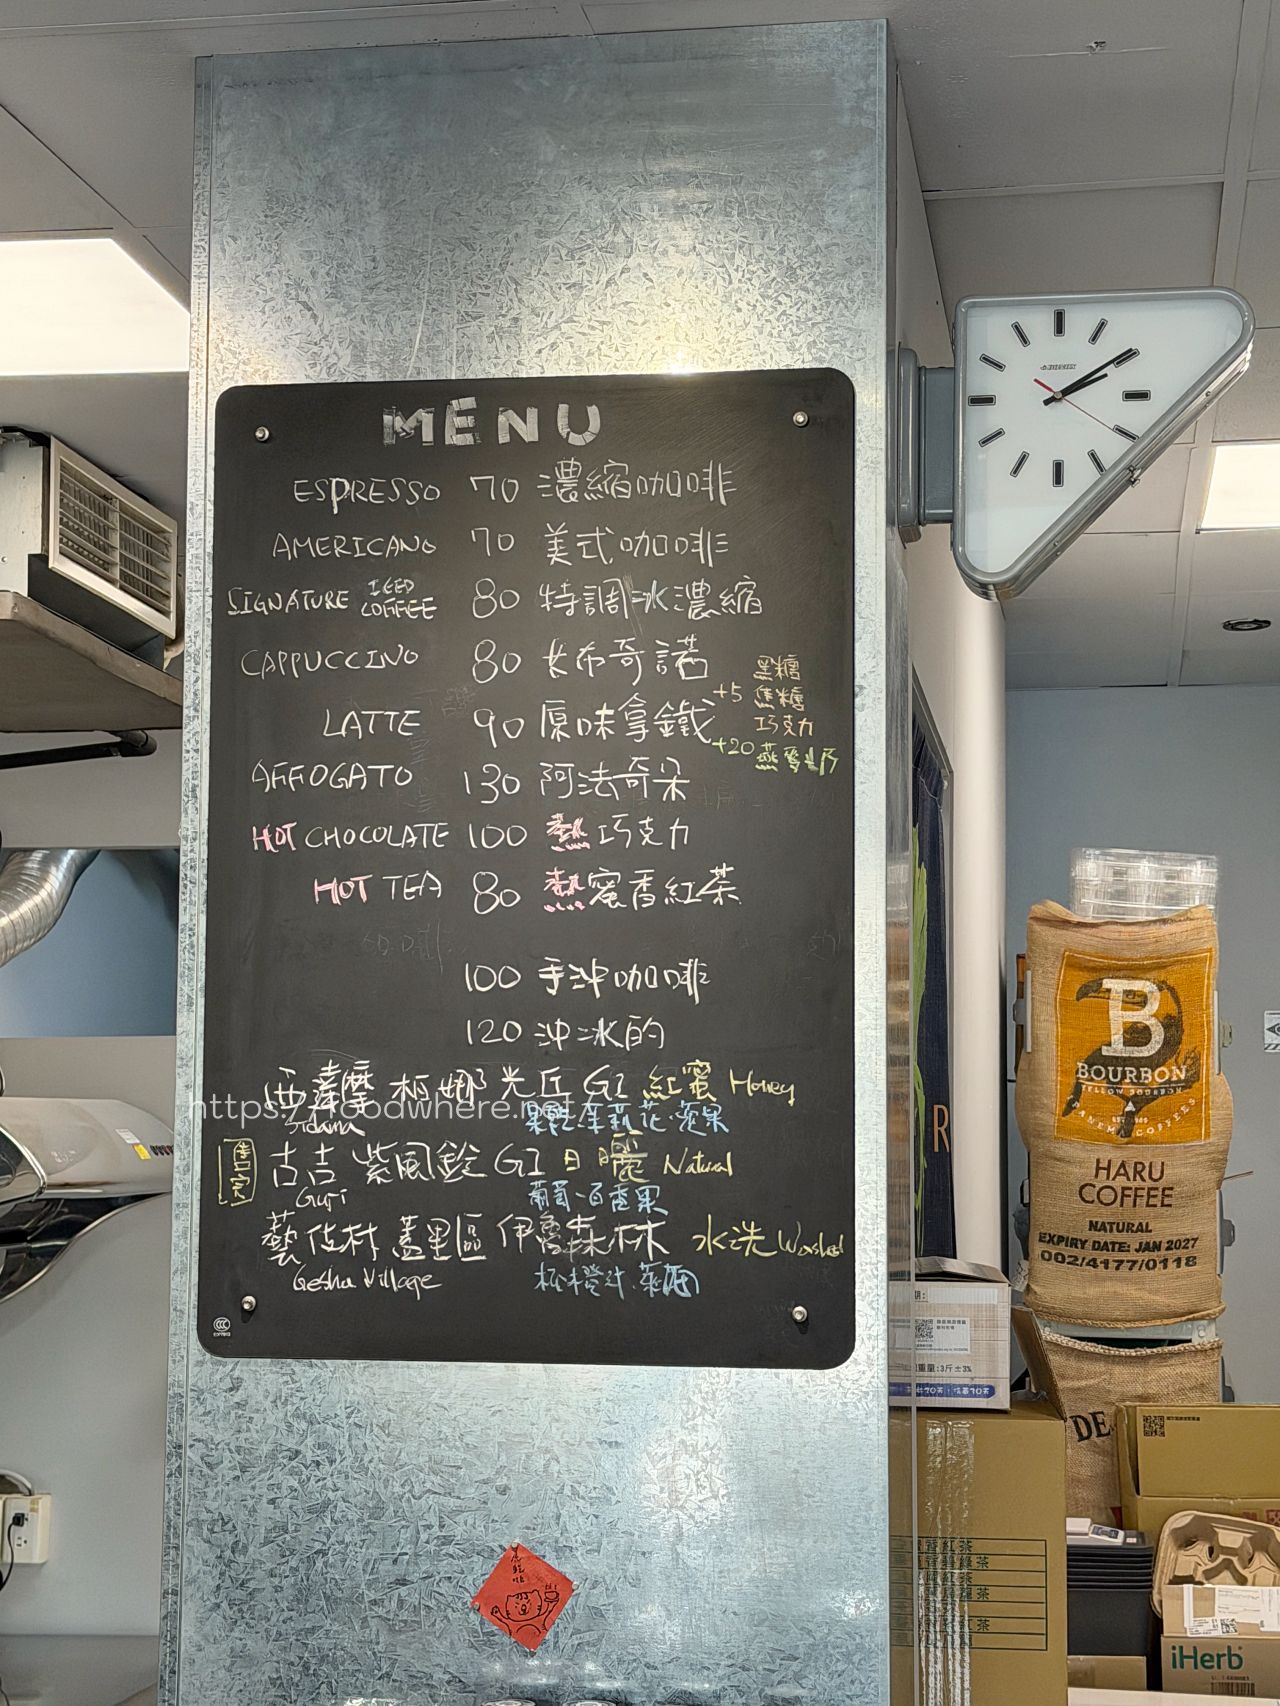 MENU
ESPRESSO 70 濃縮咖啡
AMERICANO 70 美式咖啡
SIGNATURE ICED COFFEE 80 特調冰濃縮
CAPPUCCINO 80 卡布奇諾
黑糖
+5 焦糖
巧克力
LATTE 90 原味拿鐵
+20 燕麥奶
AFFOGATO 130 阿法奇朵
HOT CHOCOLATE 100 熱巧克力
HOT TEA 80 熱蜜香紅茶
100 手沖咖啡
120 沖冰的
西達摩 柯娜 光丘 G1 紅蜜 Honey
https://foodwhere.net/
Sidama 茉莉花·蘋果
售完 古吉 紫風鈴 G1 日曬 Natural
Guji 葡萄·百香果
藝伎村 蓋里區 伊魯森林 水洗 Washed
Gesha Village 柳橙汁·萊姆
CCC
B
BOURBON
YELLOW BOURBON
HARU
COFFEE
NATURAL
EXPIRY DATE: JAN 2027
002/4177/0118
DE
R
重量:3斤±3%
iHerb